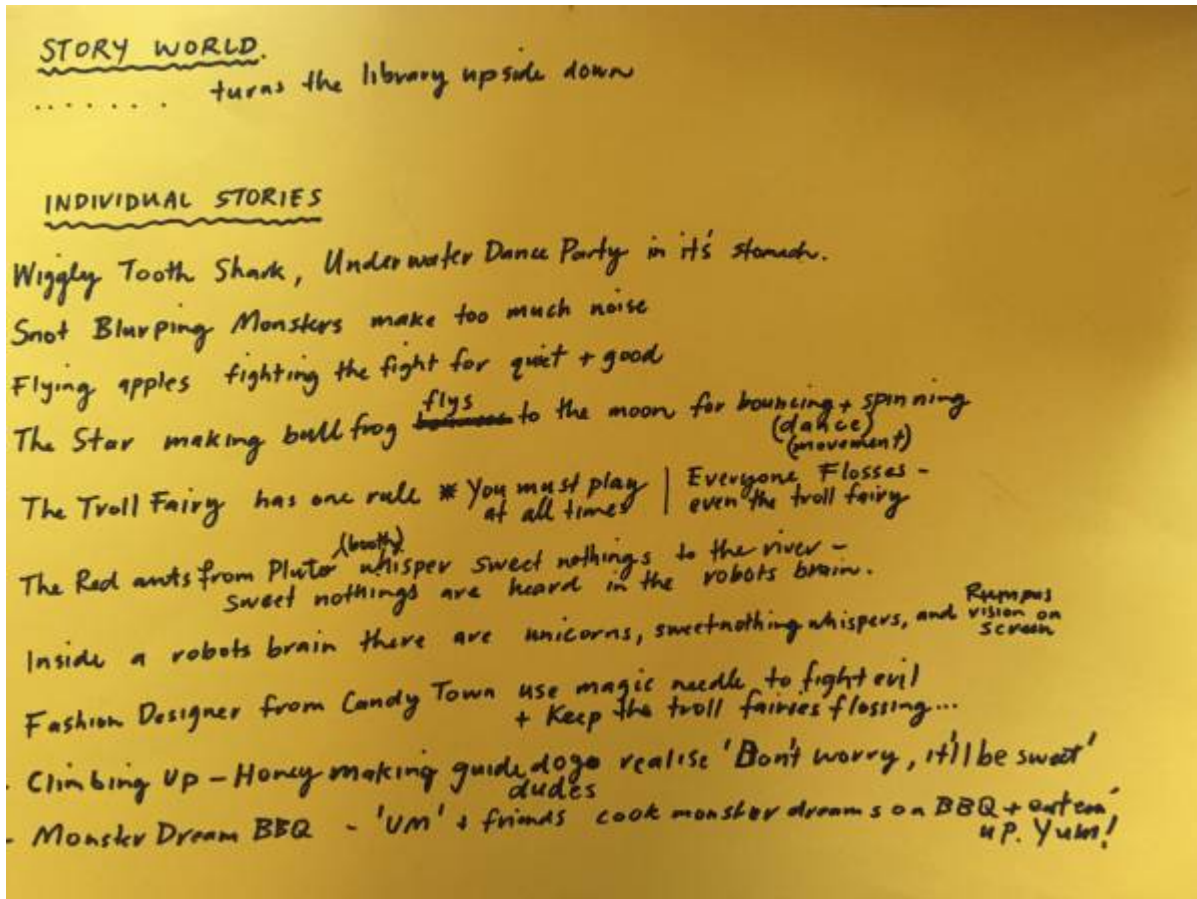 STORY WORLD.
....... turns the library upside down
INDIVIDUAL STORIES
Wiggly Tooth Shark, Underwater Dance Party in it's stomach.
Snot Blurping Monsters make too much noise
Flying apples fighting the fight for quiet + good
flys
The Star making bullfrog to the moon for bouncing + spinning
(dance)
(movement)
The Troll Fairy has one rule * You must play | Everyone Flosses -
at all times | even the troll fairy
(booth)
The Red ants from Pluto whisper sweet nothings to the river -
sweet nothings are heard in the robots brain.
Rumpus
Inside a robots brain there are unicorns, sweetnothing whispers, and vision on
screen
Fashion Designer from Candy Town use magic needle to fight evil
+ Keep the troll fairies flossing...
- Climbing Up - Honey making guide dogo realise 'Don't worry, it'll be sweet'
dudes
- Monster Dream BBQ - 'UM' + friends cook monster dreams on BBQ + eat em'
up. Yum!